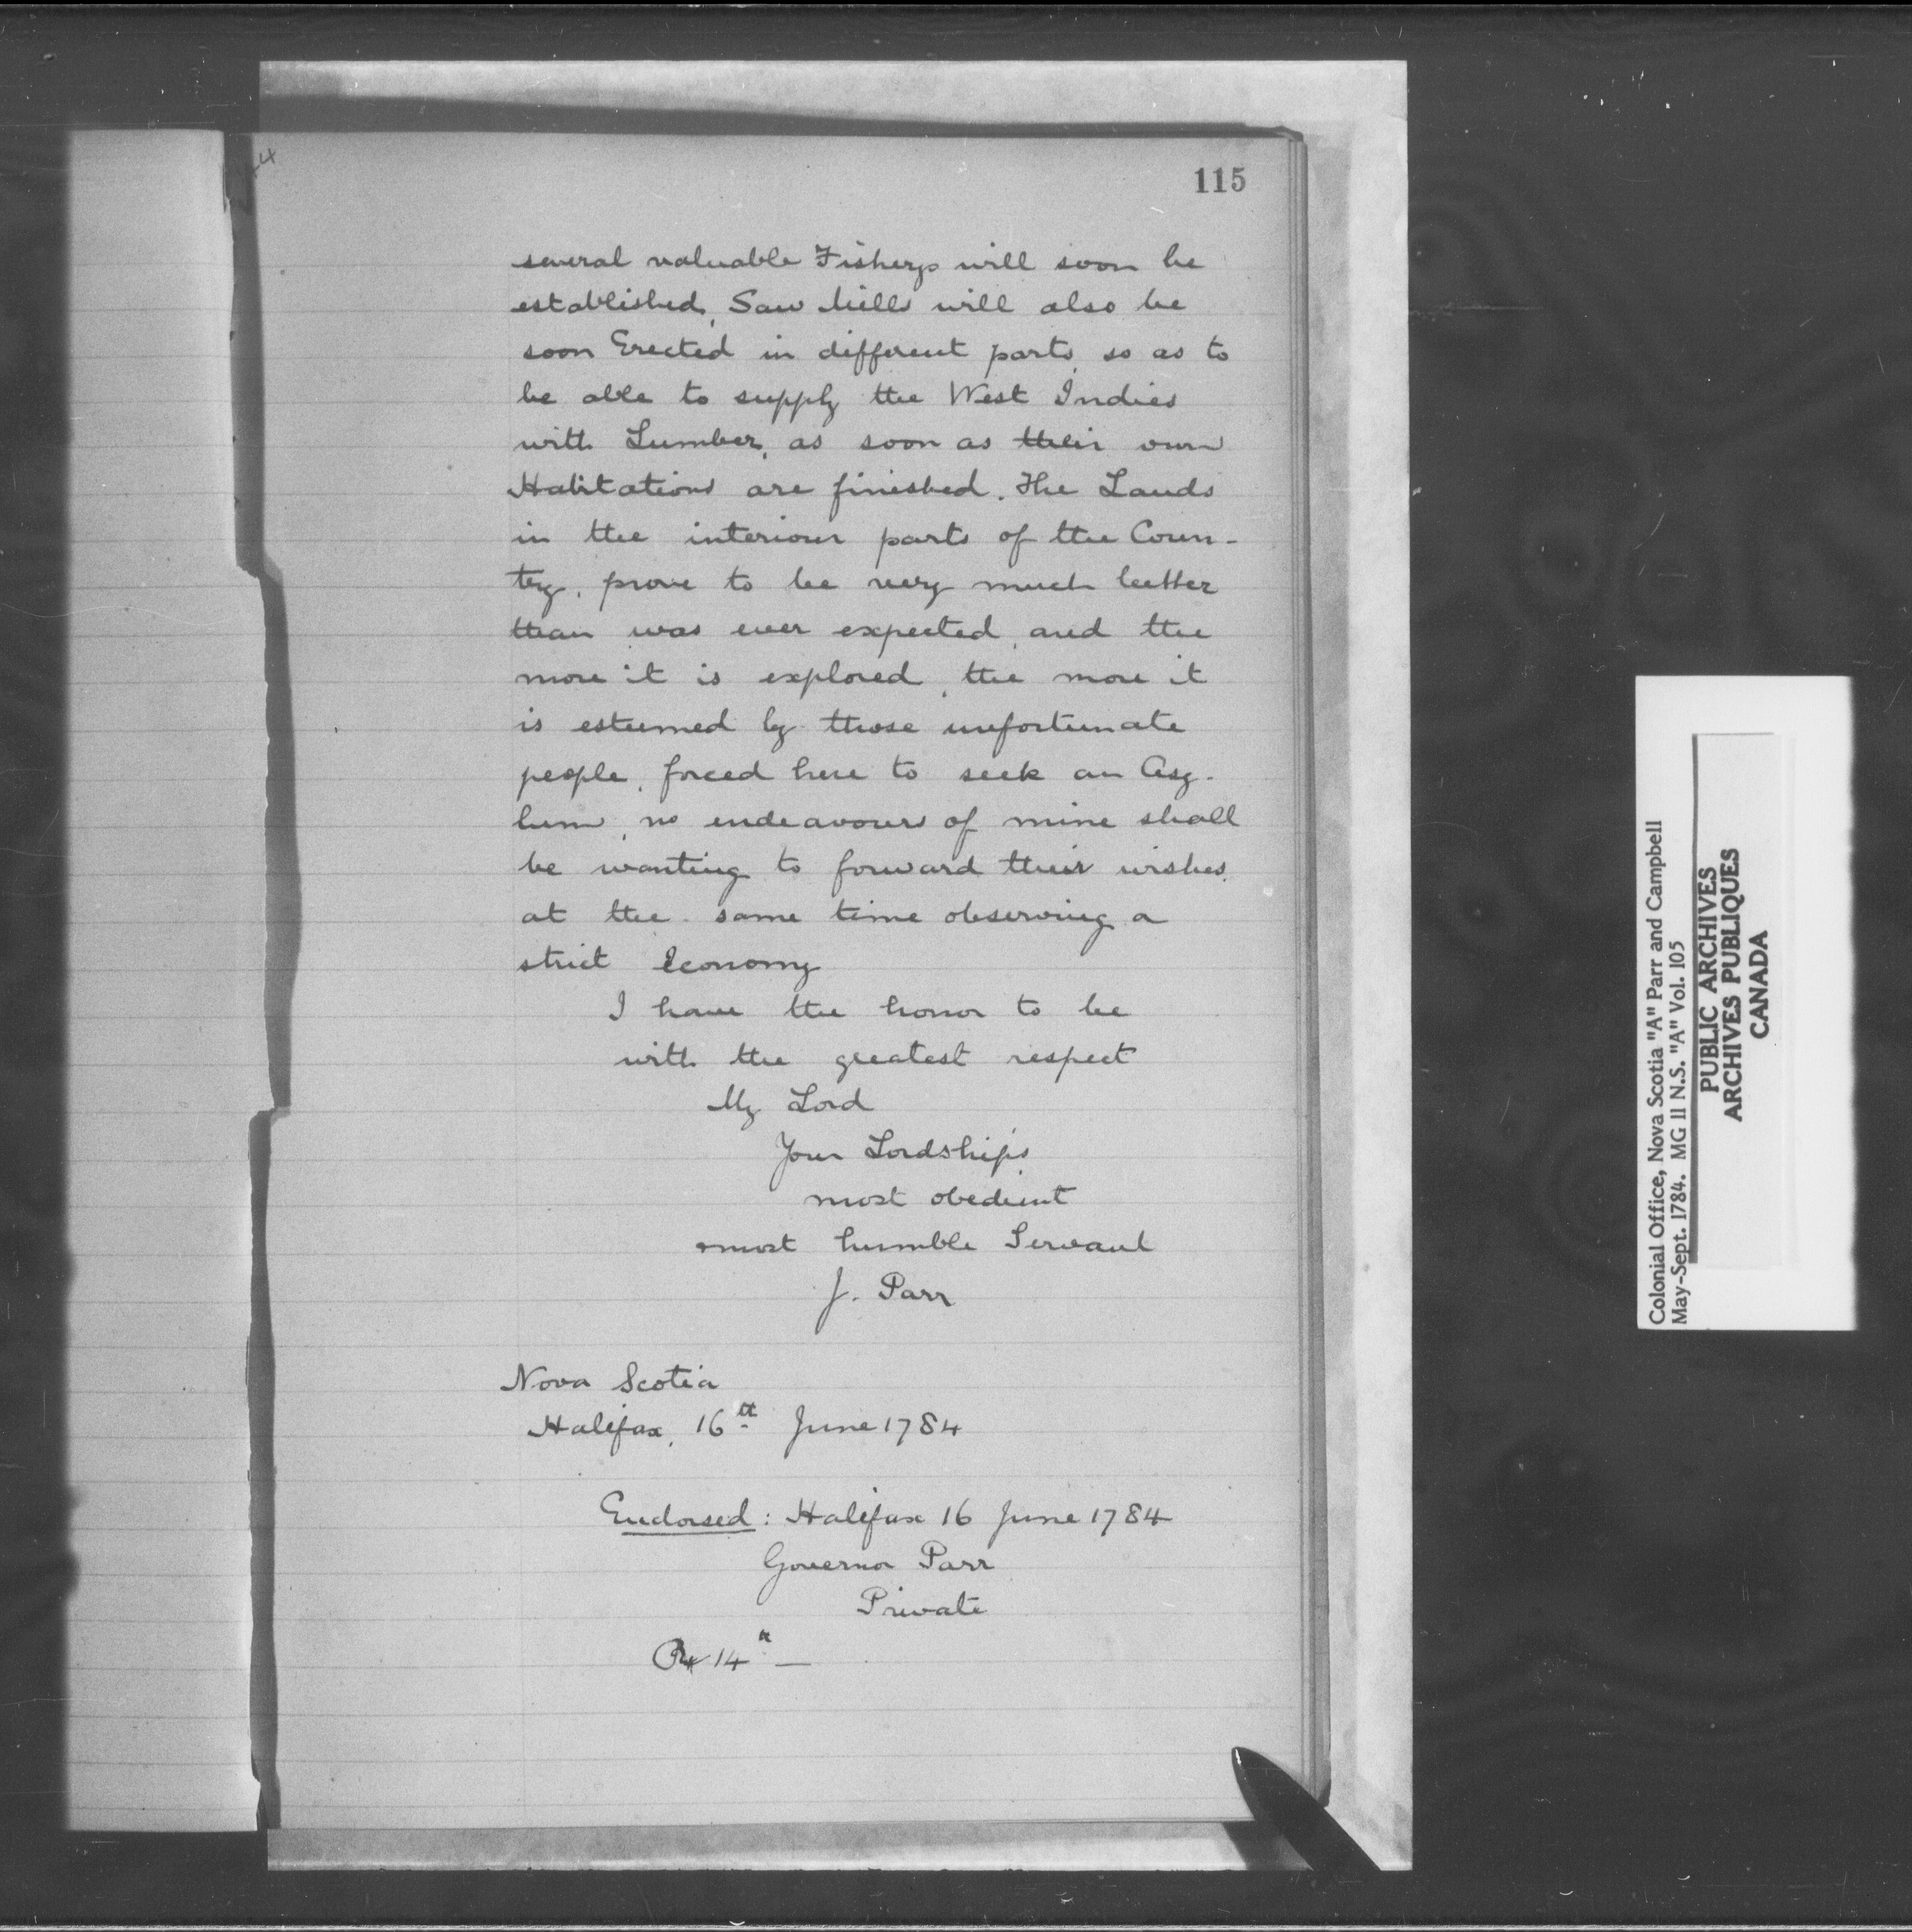 115
several valuable Fisherys will soon be
established, Saw Mills will also be
soon Erected in different parts, so as to
be able to supply the West Indies
with Lumber, as soon as their own
Habitations are finished. The Lands
in the interiour parts of the Coun-
try, prove to be very much better
than was ever expected, and the
more it is explored, the more it
is esteemed by those unfortunate
people, forced here to seek an Asy-
lum, no endeavours of mine shall
be wanting to forward their wishes,
at the same time observing a
strict Economy
I have the honor to be
with the greatest respect
My Lord
Your Lordship's
most obedient
most humble Servant
J. Parr
Nova Scotia
Halifax, 16th June 1784
Endorsed: Halifax 16 June 1784
Governor Parr
Private
14
Colonial Office, Nova Scotia "A" Parr and Campbell
May-Sept. 1784. MG 11 N.S. "A" Vol. 105
PUBLIC ARCHIVES
ARCHIVES PUBLIQUES
CANADA